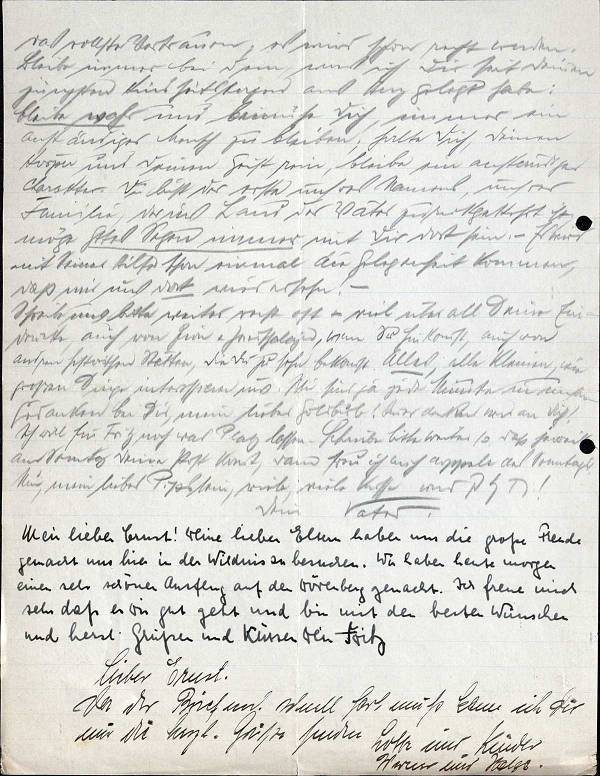 das vollste Vertrauen, es wird schon recht werden.
Bleibe immer bei dem, was ich Dir seit Deinen
jüngsten Kindheitstagen ans Herz gelegt habe:
bleibe wahr und bemühe Dich, immer ein
anständiger Mensch zu bleiben, halte Dir Deinen
Körper und Deinen Geist rein, bleibe ein aufrechter
Charakter. Du bist der erste unseres Namens, unserer
Familie, der ins Land der Väter zurückgekehrt ist,
möge Gottes Segen immer mit Dir dort sein. - Es wird
mit Seiner Hilfe schon einmal die Gelegenheit kommen,
daß wir uns dort wiedersehen! -
Schreib uns bitte weiter recht oft & viel über all Deine Ein-
drücke auch von wenn Du hinkommst, auch von
andern historischen Stätten, die Du zu sehn bekommst. Alles, alle kleinen, wie
großen Dinge interessieren uns. Wir sind ja jede Minute in unseren
Gedanken bei Dir, mein lieber Goldbub!
Ich will für Fritz noch was Platz lassen. Schreibe bitte weiter so, daß jeweils
am Sonntag Deine Post kommt, dann freu ich mich doppelt des Sonntags!
Nun, mein lieber viele, viele Küsse von
Dein Vater.
Mein lieber Ernst! Deine lieben Eltern haben uns die große Freude
gemacht uns hier in der Wildnis zu besuchen. Wir haben heute morgen
einen sehr schönen Ausflug auf den gemacht. Ich freue mich
sehr daß es Dir gut geht und bin mit den besten Wünschen
und herzl. Grüßen und Küssen Dein Fritz
Lieber Ernst.
Da der Brief schnell fort muß kann ich Dir
nur die herzl. Grüße senden Lotte und Kinder
Werner und Helga.